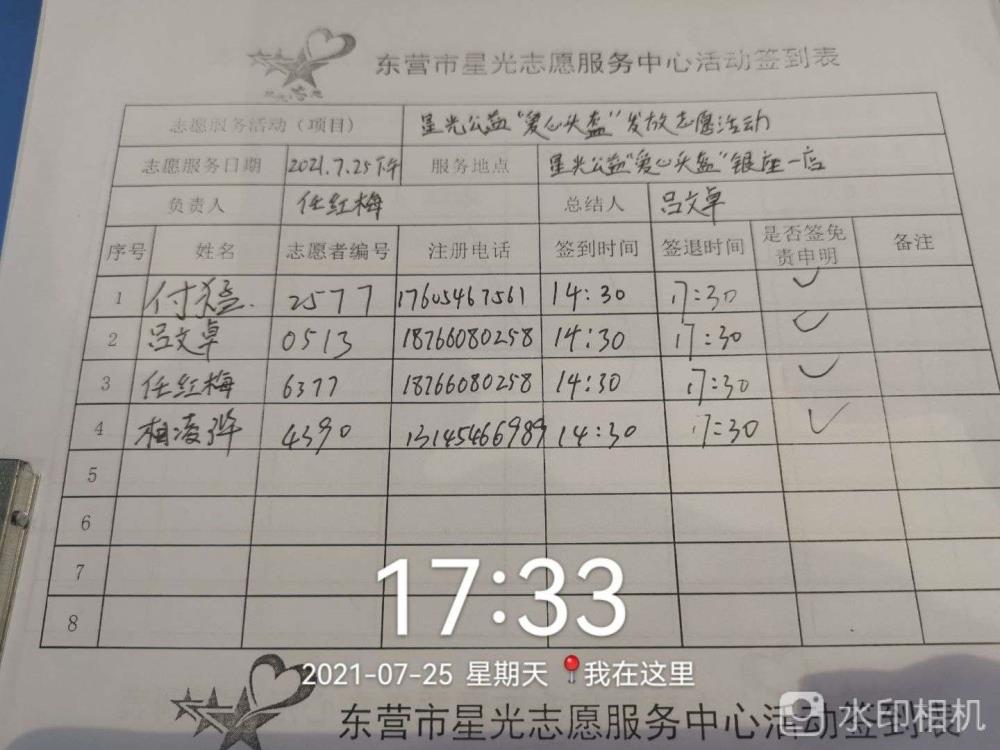 东营市星光志愿服务中心活动签到表
志愿服务活动（项目） 星光公益“爱心头盔”发放志愿活动
志愿服务日期 2021.7.25下午 服务地点 星光公益“爱心头盔”银座一店
负责人 任红梅 总结人 吕文卓
序号 姓名 志愿者编号 注册电话 签到时间 签退时间 是否签免责申明 备注
1 付猛 2577 17605467561 14:30 17:30 ✓
2 吕文卓 0513 18766080258 14:30 17:30 ✓
3 任红梅 6377 18766080258 14:30 17:30 ✓
4 相凌 4390 13145466989 14:30 17:30 ✓
5
6
7
8
17:33
2021-07-25 星期天 📍我在这里
东营市星光志愿服务中心活动签到表
水印相机